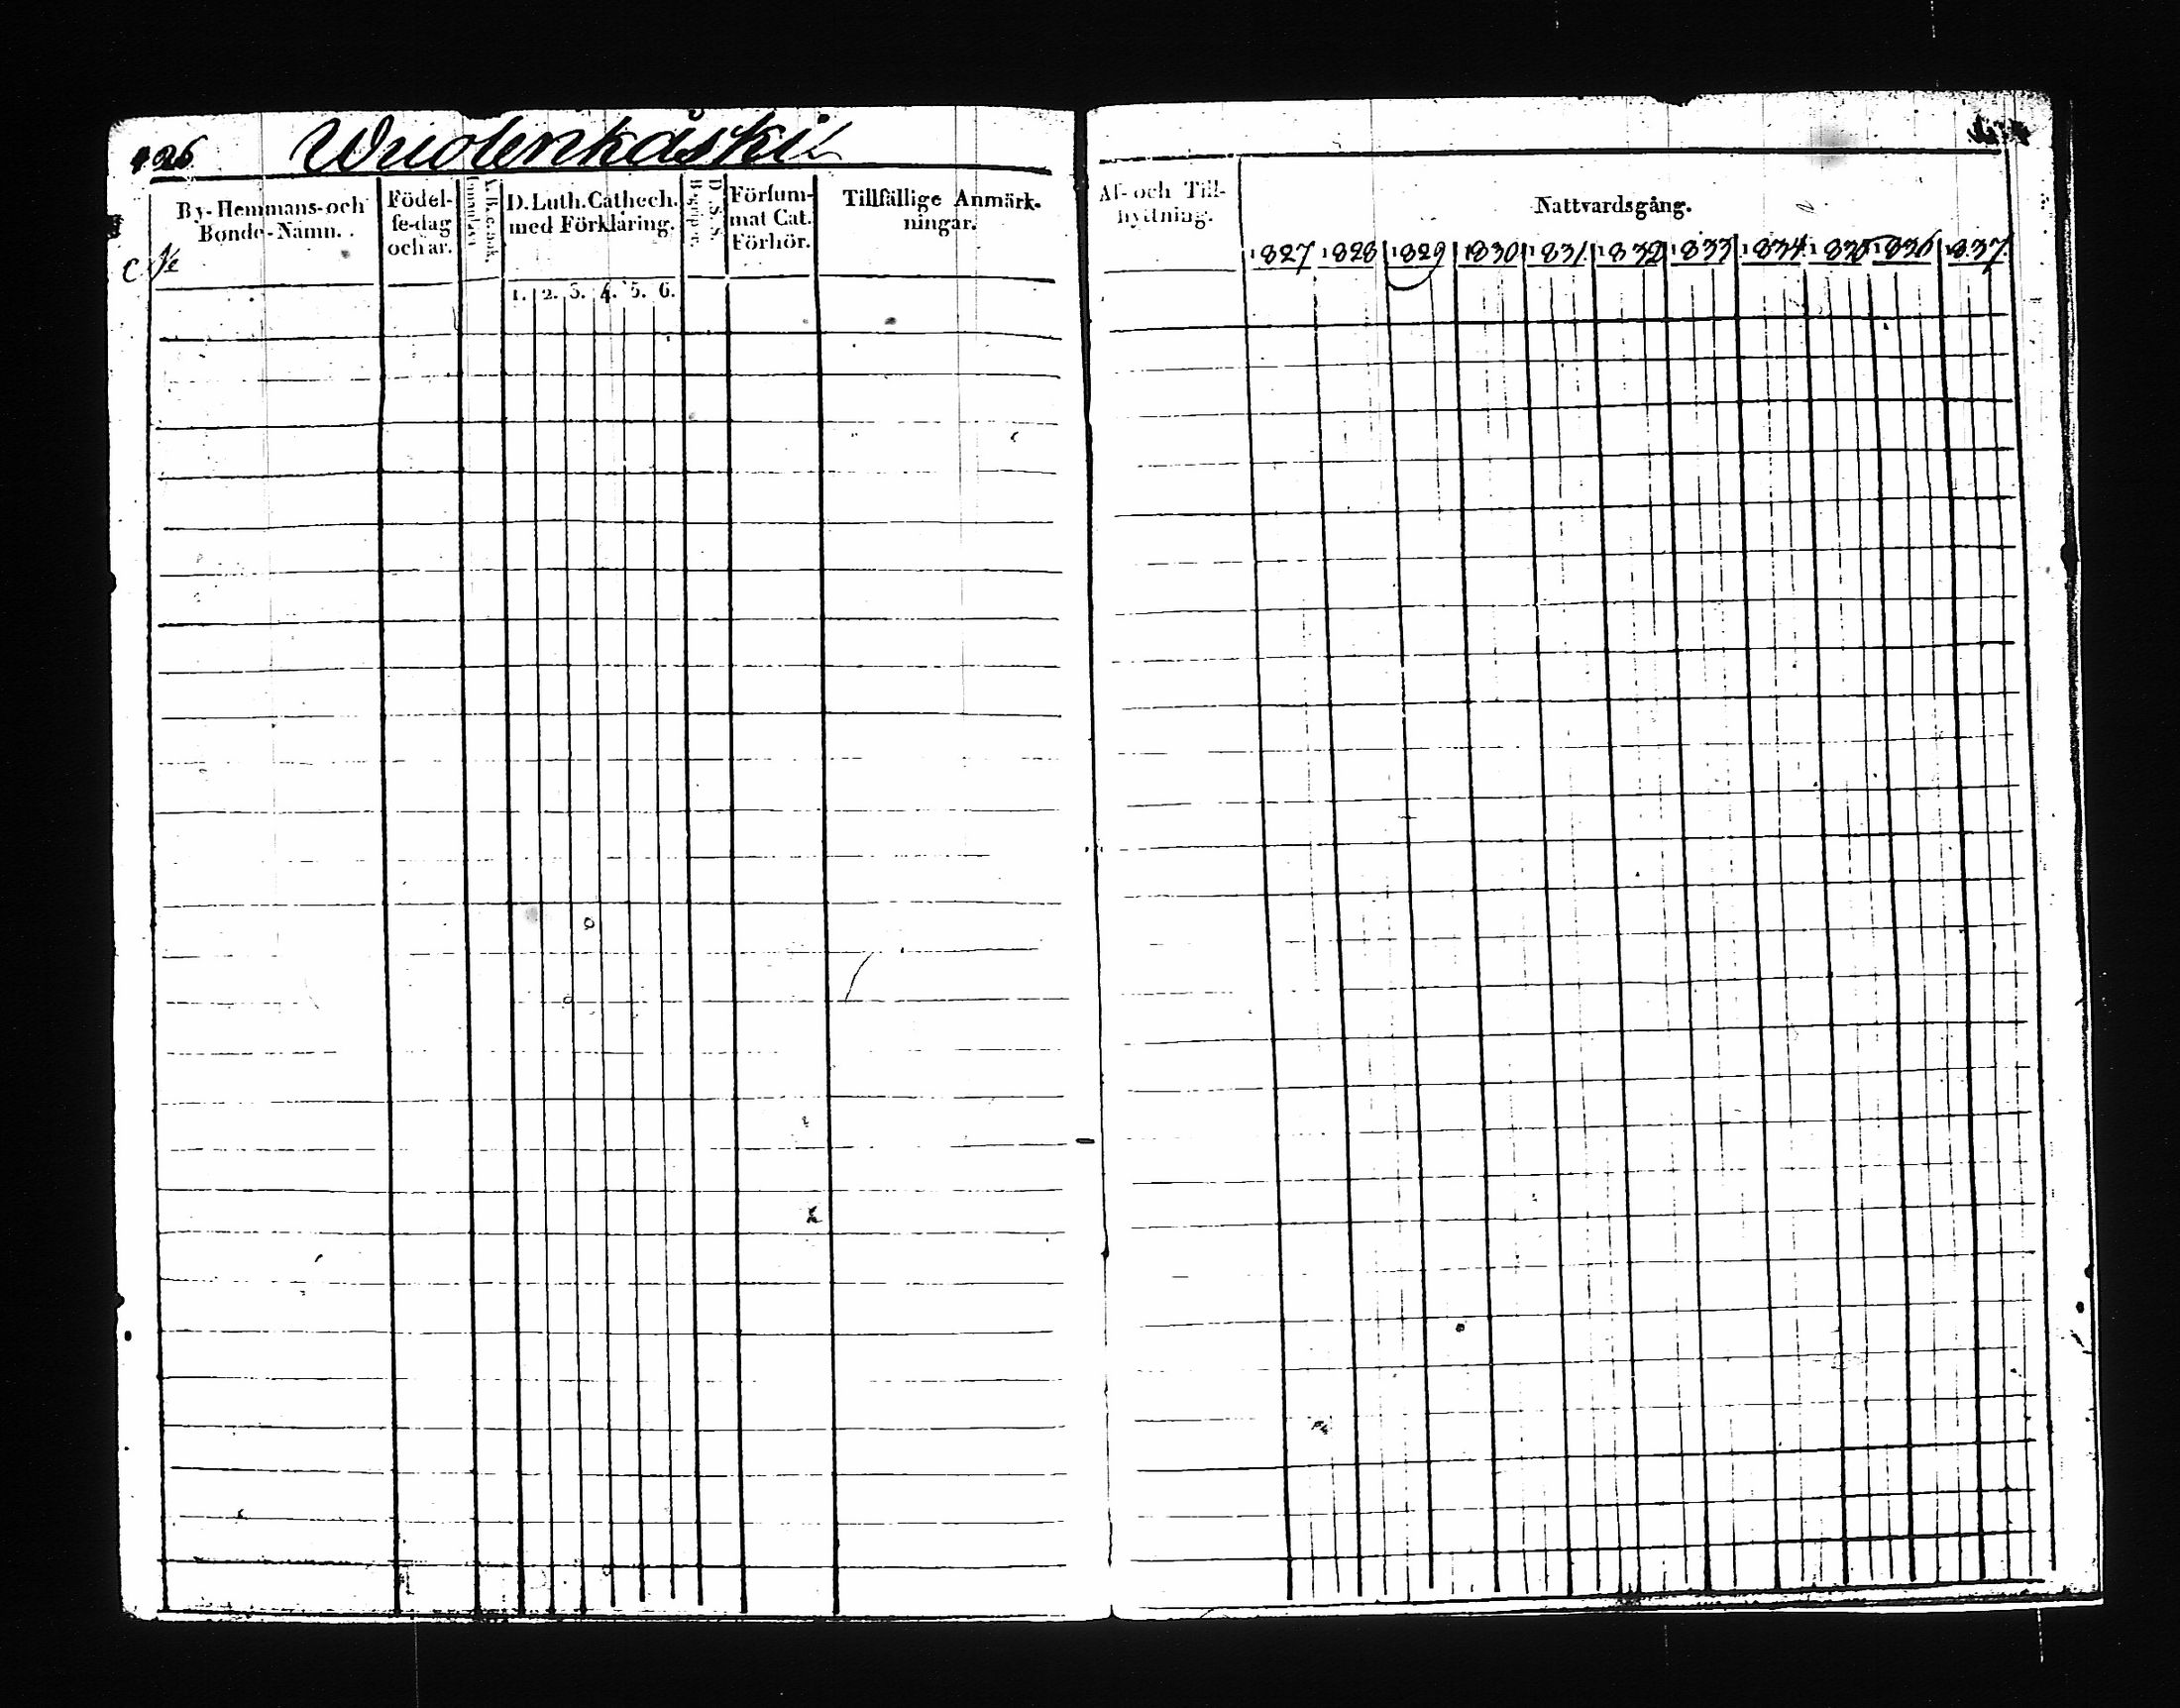 426 Wuolenkoski
By- Hemmans- och Bonde-Namn.
Födel-se-dag och år.
D. Luth. Cathech. med Förklaring.
1. 2. 3. 4. 5. 6.
D. S. S. Begrepp.
Försum-mat Cat. Förhör.
Tillfällige Anmärk-ningar.
Af- och Till-hyttning.
Nattvardsgång.
1827 1828 1829 1830 1831 1832 1833 1834 1835 1836 1837